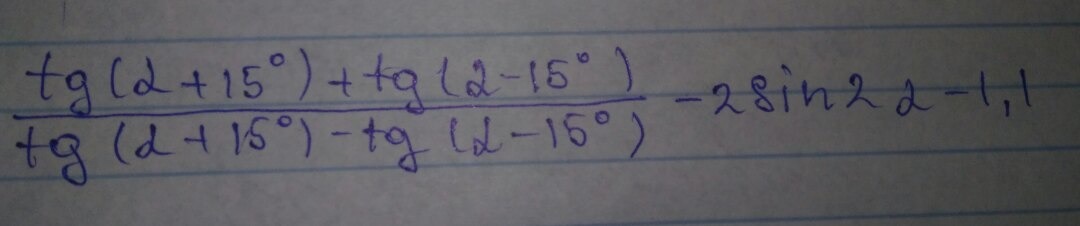 tg(α+15°)+tg(α-15°)
tg(α+15°)-tg(α-15°) -2sin2α-1,1